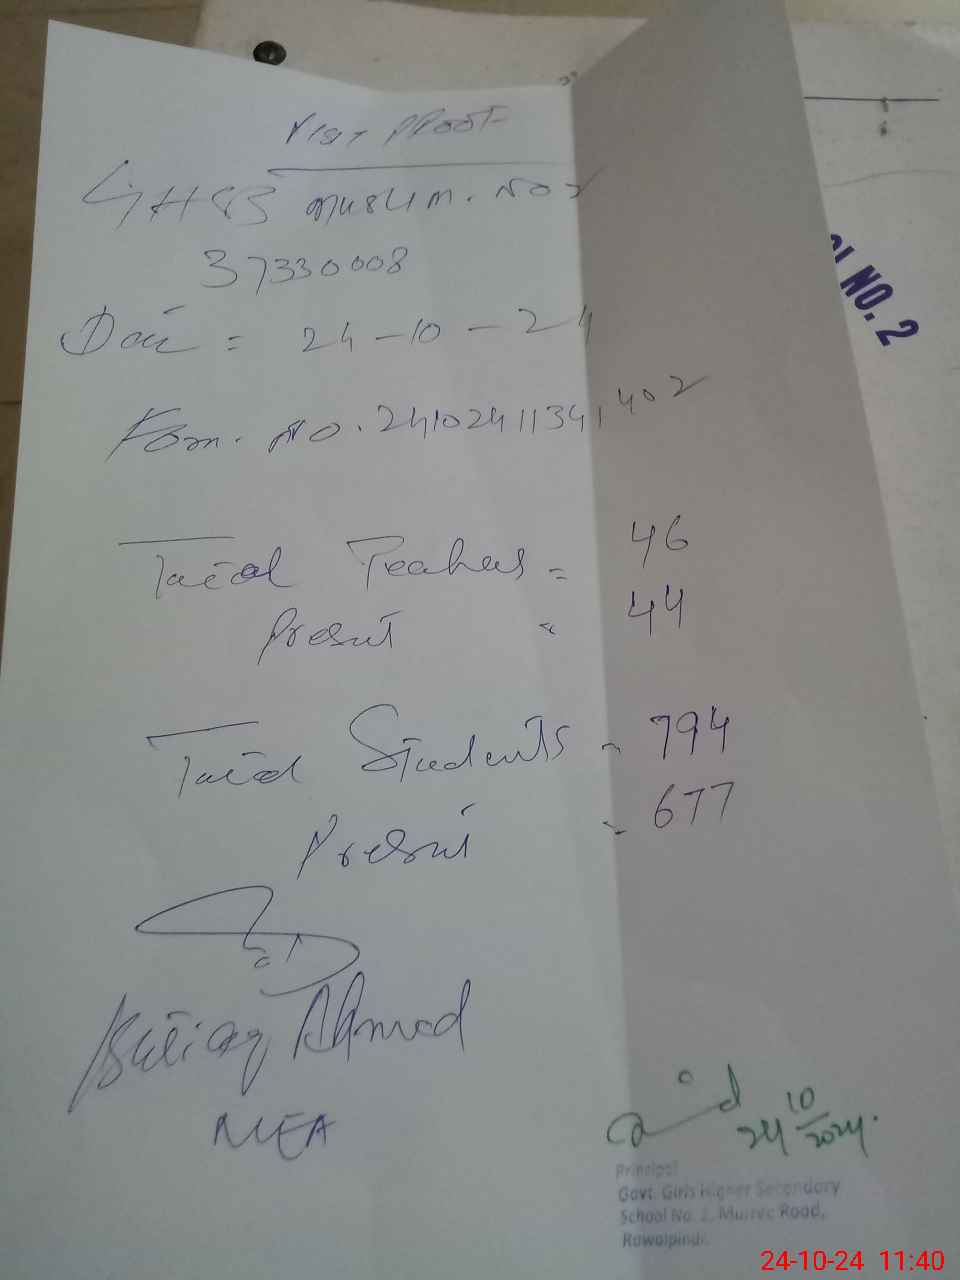 VISIT PROOF
GHSS MUSLIM. NO 2
37330008
Date = 24-10-24
Form. NO. 24102411341402
Total Teachers = 46
Present = 44
Total Students = 794
Present = 677
Ishtiaq Ahmad
MEA
24/10/2024.
Principal
Govt. Girls Higher Secondary
School No. 2, Murree Road,
Rawalpindi.
NO. 2
24-10-24 11:40